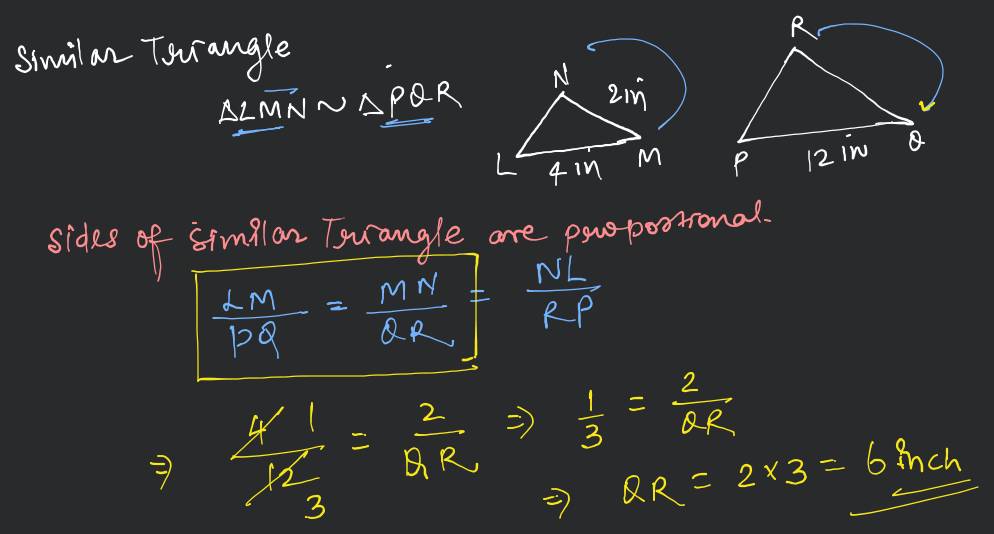 Similar Triangle
ΔLMN ~ ΔPQR
N
2in
L
4 in
M
R
P
12 in
Q
sides of similar Triangle are proportional.
LM/PQ = MN/QR = NL/RP
⇒ 4 1/12 3 = 2/QR ⇒ 1/3 = 2/QR
⇒ QR = 2×3 = 6 inch